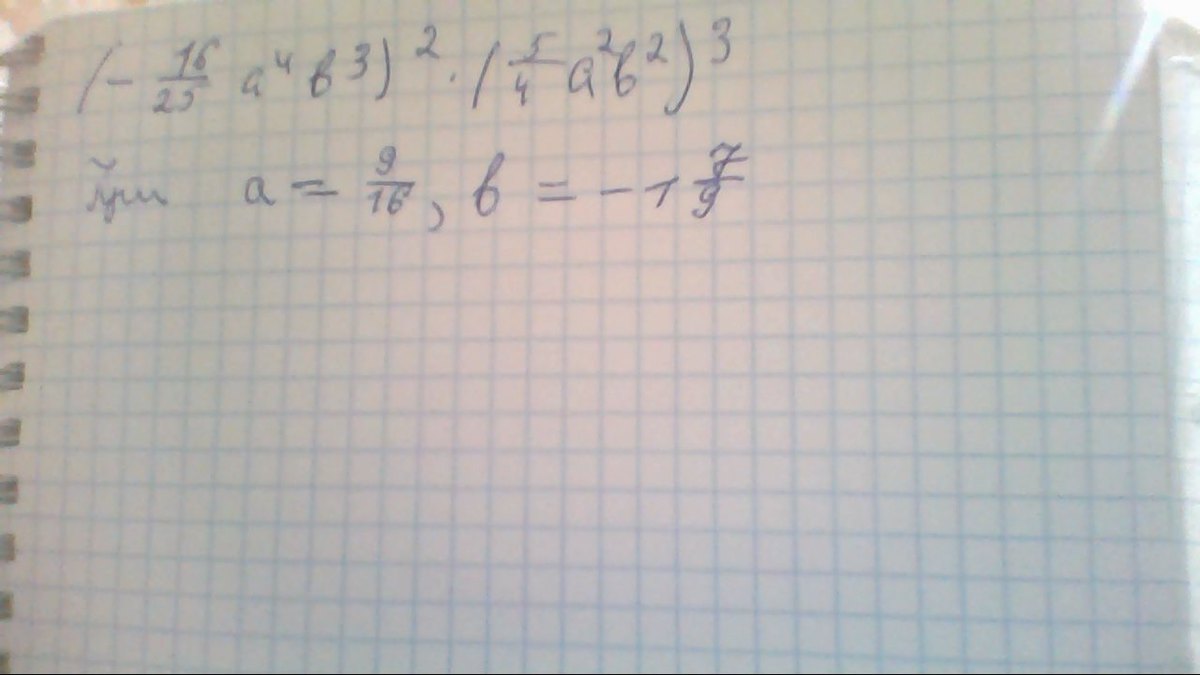 (- 16/25 a⁴ в³)² · (5/4 a²в²)³
при a = 9/16, в = -1 7/9